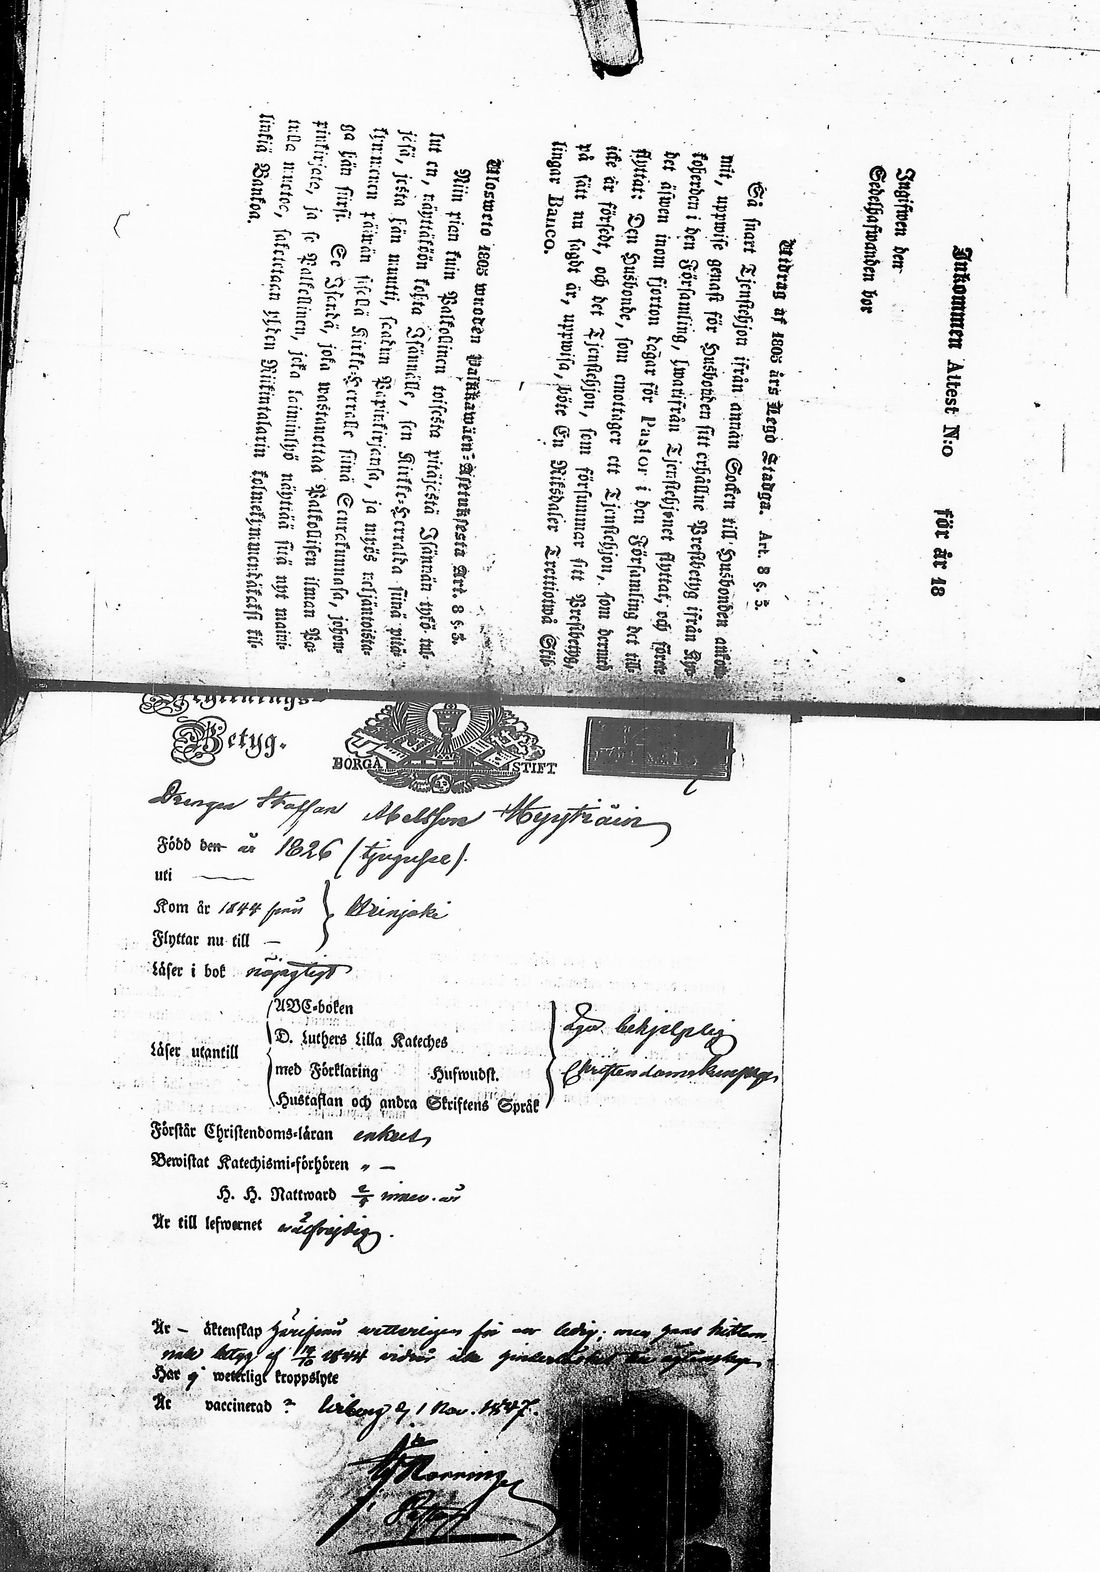 Inkommen Attest N:o för år 18
Ingifwen den
Sedelhafwanden bor
Utdrag af 1805 års Lego Stadga. Art. 8 §. 3.
Så snart Tjenstehjon ifrån annan Socken till Husbonden ankom-
mit, uppwise genast för Husbonden sitt erhållne Prestbetyg ifrån Kyr-
koherden i den Församling, hwarifrån Tjenstehjonet flyttat, och förete
det äfwen inom fjorton dagar för Pastor i den Församling det till-
flyttat: Den Husbonde, som emottager ett Tjenstehjon, som dermed
icke är försedt, och det Tjenstehjon, som försummar sitt Prestbetyg,
på sätt nu sagdt är, uppwisa, böte En Riksdaler Trettiotwå Skil-
lingar Banco.
Ulosweto 1805 wuoden Palkkawäen-Asetuksesta Art. 8 §. 3.
Niin pian kuin Palkollinen toisesta pitäjästä Isännän tykö tul-
lut on, näyttäköön kohta Isännälle, sen Kirkko-Herralda siinä pitä-
jäsä, josta hän muutti, saadun Papinkirjansa, ja myös neljäntoista-
kymmenen päiwän sisällä Kirkko-Herralle siinä Seurakunnasa, johon-
ga hän siirsi. Se Isändä, joka wastanottaa Palkollisen ilman Pa-
pinkirjata, ja se Palkollinen, joka laiminlyö näyttää sitä nyt maini-
tulla muotoa, sakotetaan yhden Riikintalarin kolmekymmendäkaksi kil-
linkiä Bankoa.
Betyg.
BORGÅ STIFT
Drengen Staffan Abelsson Hyytiäin
Född den år 1826 (tjugusse).
uti
Kom år 1844 från
Flyttar nu till —
Läser i bok nöjagtigt
Läser utantill
ABC-boken
D. Luthers Lilla Kateches
med Förklaring Hufwudst.
Hustaflan och andra Skriftens Språk
Ego behjelplig
Christendomskunskap
Förstår Christendoms-läran enkelt
Bewistat Katechismi-förhören " —
H. H. Nattward innev. år
Är till lefwernet wälfrejdig.
Är — äktenskap härifrån wetterligen för oss ledig; men hans
betyg af 1844 widrör icke
Har ej weterligt kroppslyte
Är vaccinerad ? Wiborg d. 1 Nov. 1847.